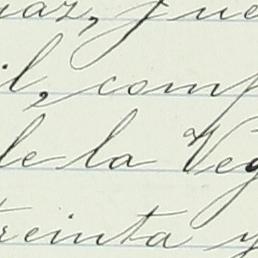 uaz, jue
il, comp
de la Veg
treinta y